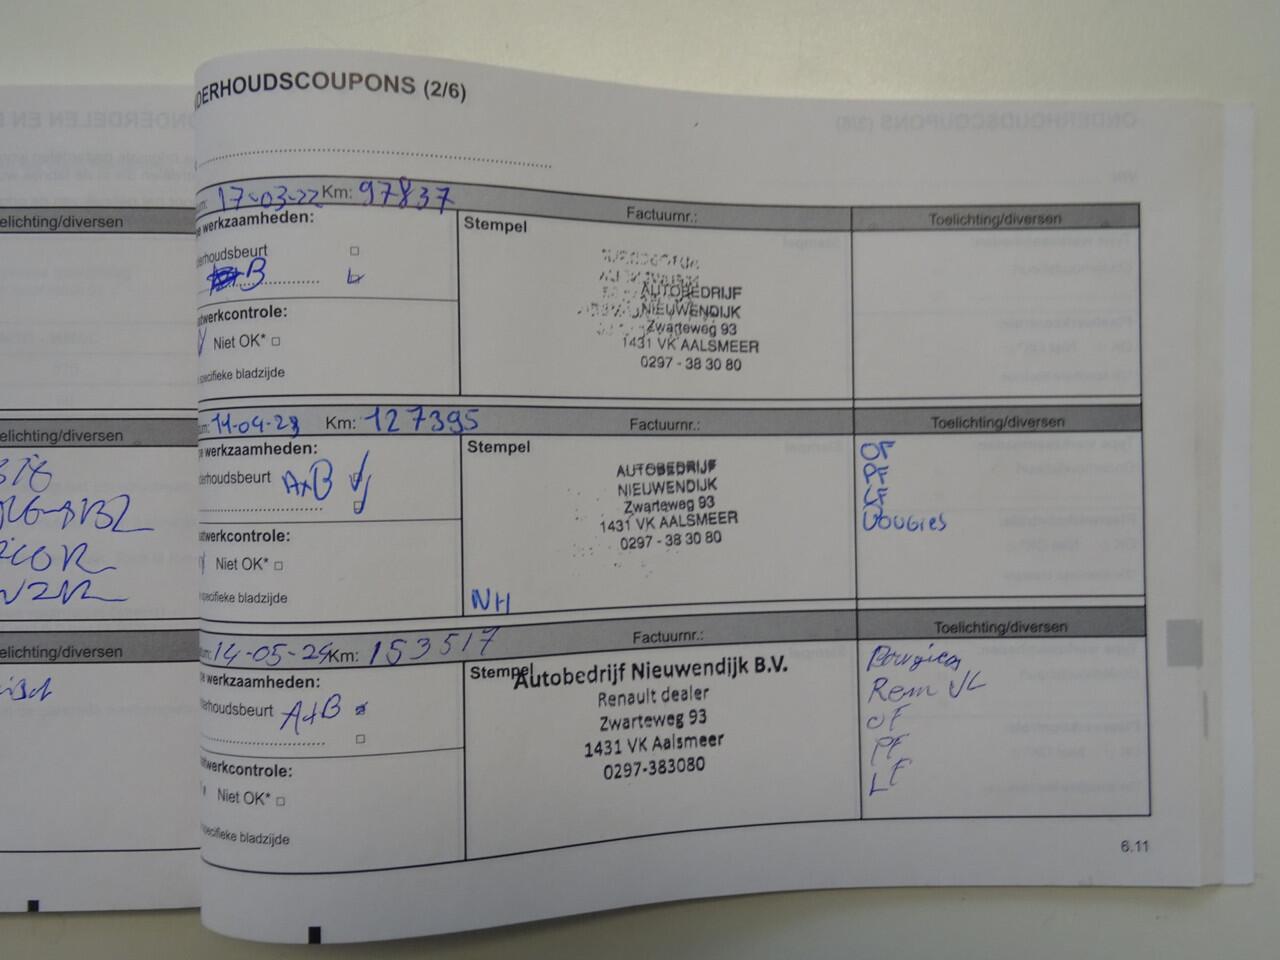 DERHOUDSCOUPONS (2/6)
17-03-22 Km: 97837
Factuurnr.:
Toelichting/diversen
werkzaamheden:
derhoudsbeurt
B
Stempel
AUTOBEDRIJF
NIEUWENDIJK
Zwarteweg 93
1431 VK AALSMEER
0297 - 38 30 80
twerkcontrole:
Niet OK*
specifieke bladzijde
elichting/diversen
Km: 127395
Factuurnr.:
Toelichting/diversen
werkzaamheden:
derhoudsbeurt A+B
Stempel
AUTOBEDRIJF
NIEUWENDIJK
Zwarteweg 93
1431 VK AALSMEER
0297 - 38 30 80
NH
OF
PF
LF
Bougies
twerkcontrole:
Niet OK*
specifieke bladzijde
elichting/diversen
14-05-24 Km: 153517
Factuurnr.:
Toelichting/diversen
werkzaamheden:
derhoudsbeurt A+B
Stempel
Autobedrijf Nieuwendijk B.V.
Renault dealer
Zwarteweg 93
1431 VK Aalsmeer
0297-383080
Bougies
Rem VL
OF
PF
LF
twerkcontrole:
Niet OK*
specifieke bladzijde
elichting/diversen
6.11